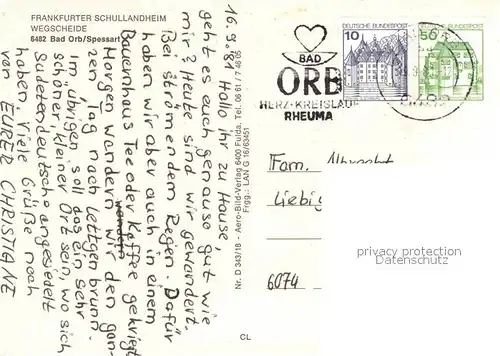 FRANKFURTER SCHULLANDHEIM
WEGSCHEIDE
6482 Bad Orb/Spessart
16.9.81
Hallo ihr zu Hause,
geht es euch genauso gut wie
mir? Heute sind wir gewandert.
Bei strömendem Regen. Dafür
haben wir aber auch in einem
Bauernhaus Tee oder Kaffee gekriegt.
Morgen wandern wir den gan-
zen Tag nach Lettgenbrunn.
Im übrigen soll das ein sehr
schöner, kleiner Ort sein, wo sich
Sudetendeutsche angesiedelt
haben. Viele Grüße noch
von EURER CHRISTIANE
Nr. D 343/18 - Aero-Bild-Verlag 6400 Fulda, Tel. 06 61 / 7 46 65
Frgg.: LAN G 16/63451
CL
BAD
ORB
HERZ-KREISLAUF
RHEUMA
10
DEUTSCHE BUNDESPOST
50
DEUTSCHE BUNDESPOST
Fam. Albrecht
Liebig
6074
privacy protection
Datenschutz